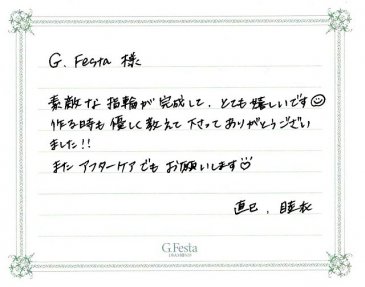 G. Festa 様
素敵な指輪が完成して、とても嬉しいです
作る時も優しく教えて下さってありがとうござい
ました!!
またアフターケアでもお願いします
直巳、睦衣
G.Festa